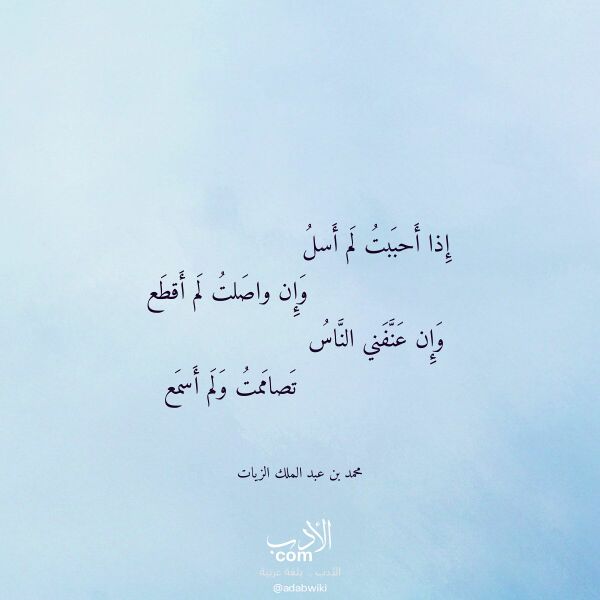 إِذا أَحبَبتُ لَم أَسلُ
وَإِن واصَلتُ لَم أَقطَع
وَإِن عَنَّفَني النَّاسُ
تَصامَمتُ وَلَم أَسمَع
محمد بن عبد الملك الزيات
الأدب
com
الأدب .. بلغة عربية
@adabwiki